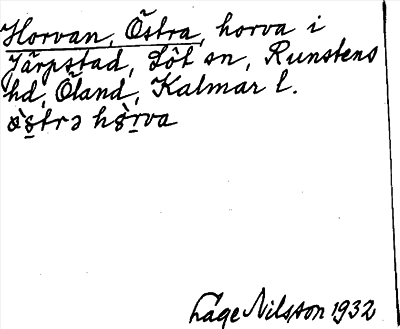 Horvan, Östra, horva i
Järpstad, Löt sn, Runstens
hd, Öland, Kalmar l.
ö̀strə hò̤rva
Låge Nilsson 1932